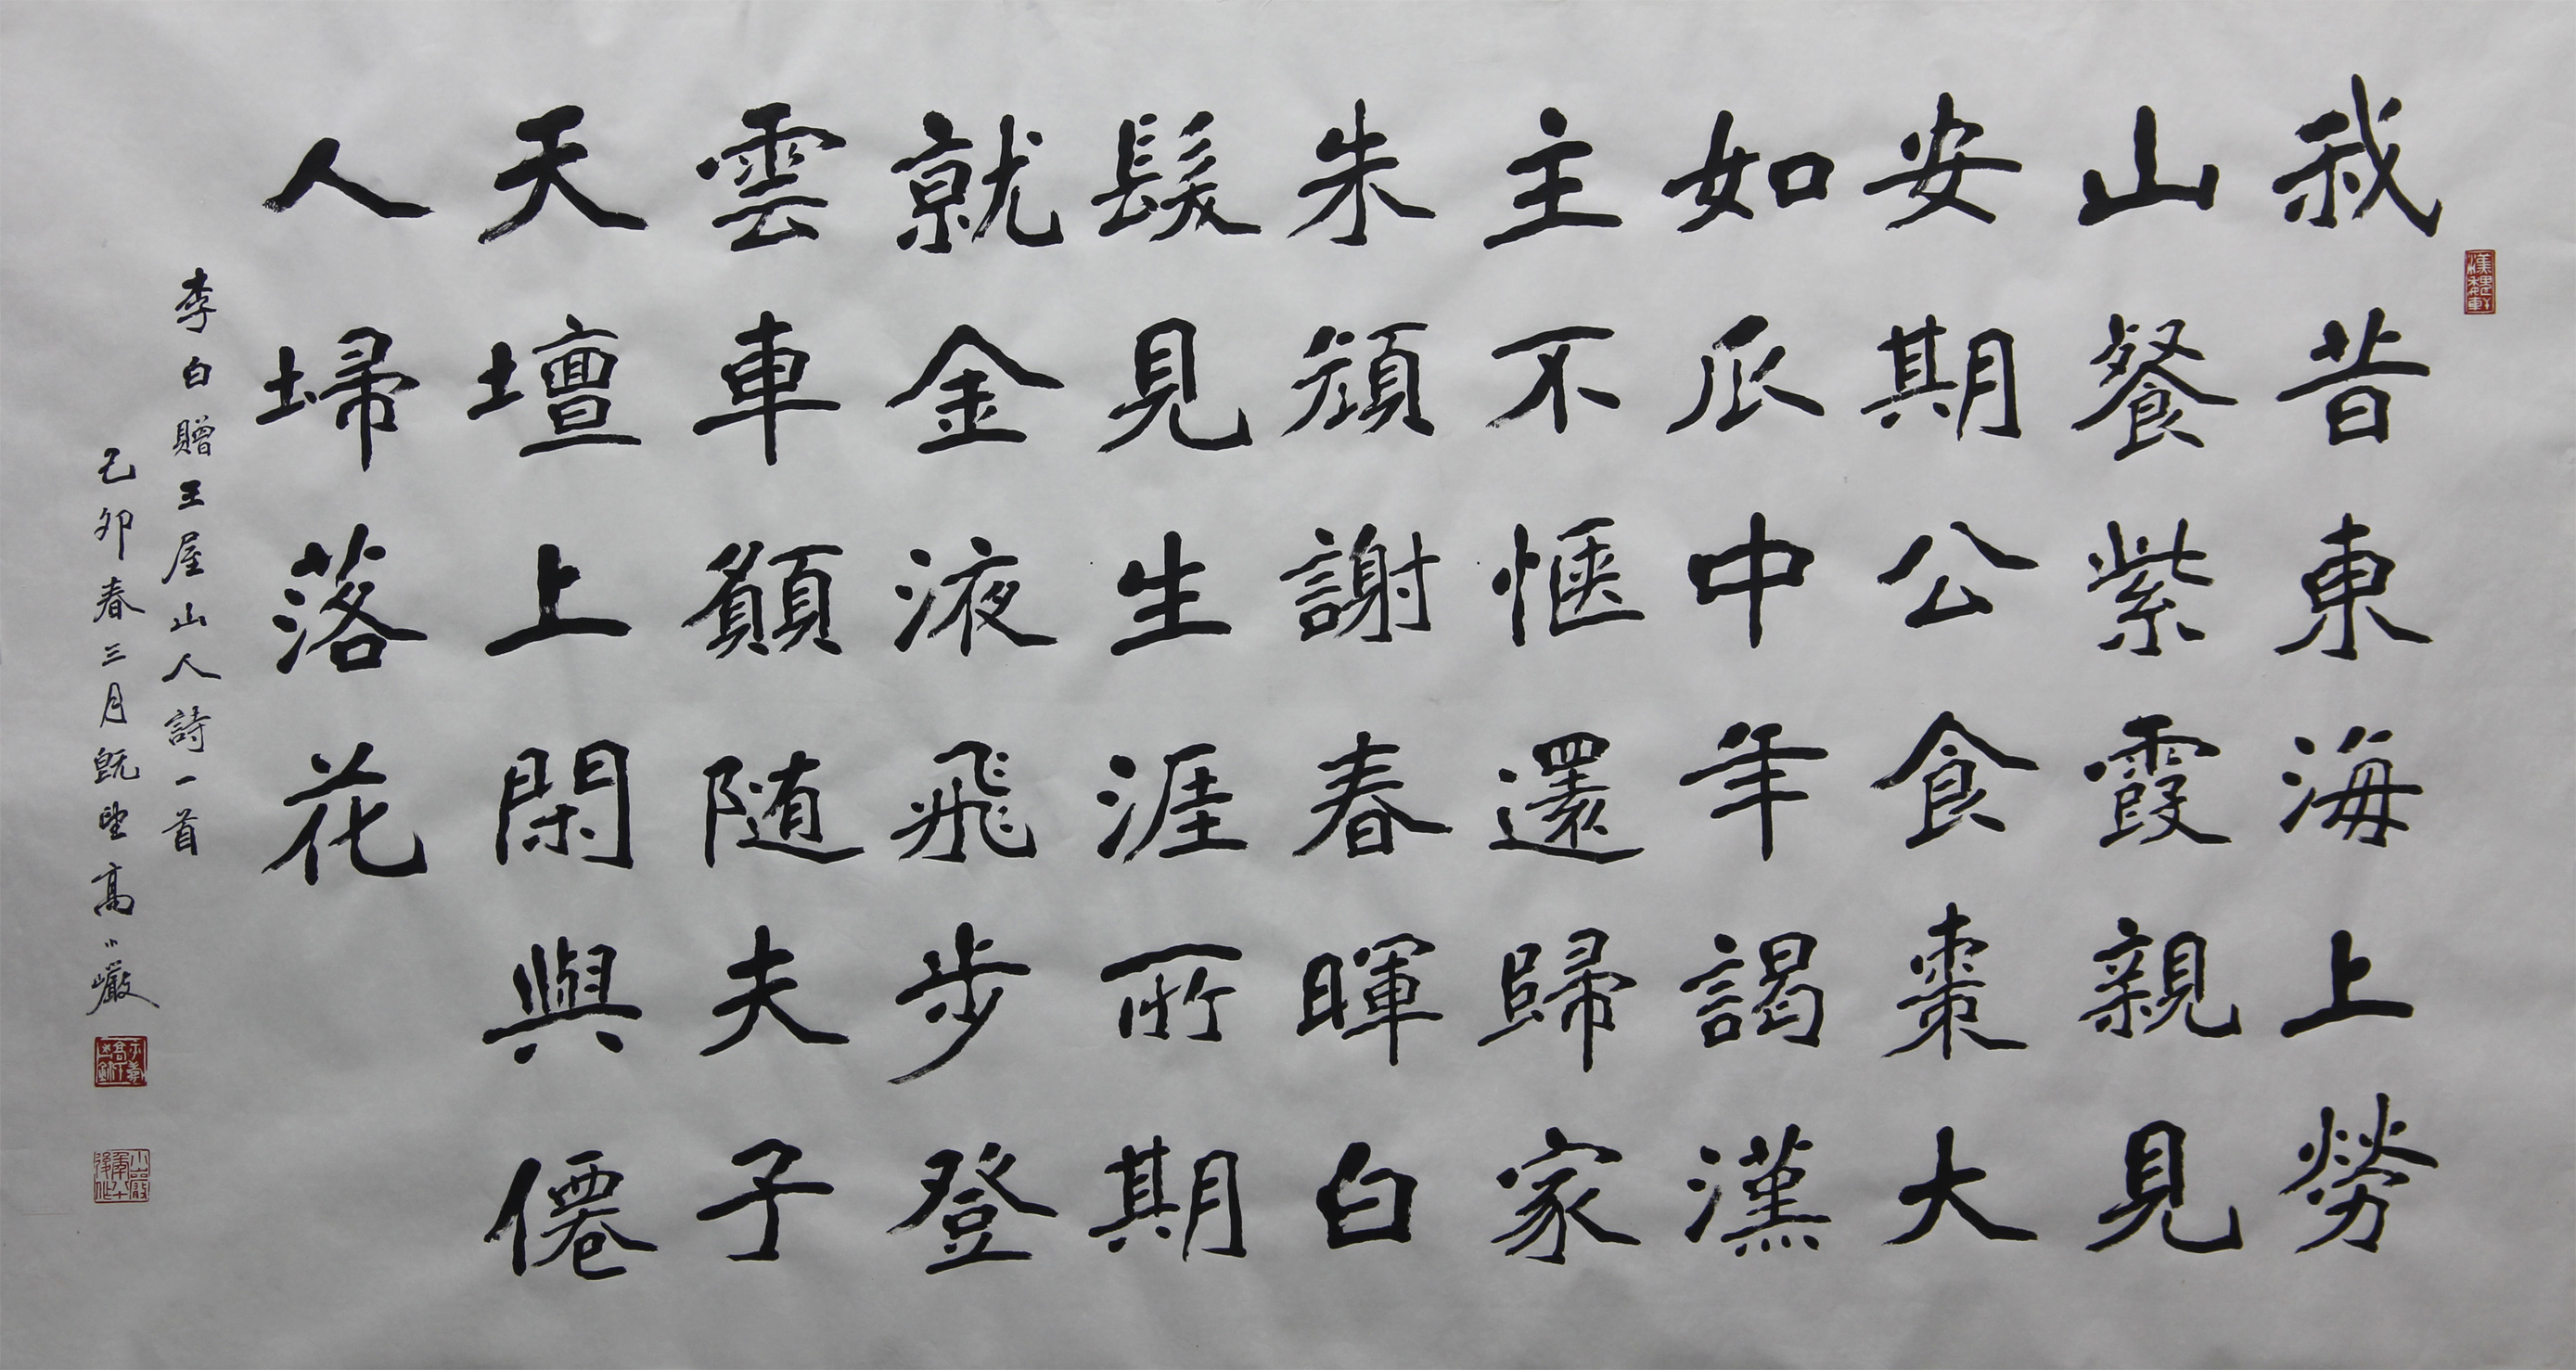 我昔東海上勞
山餐紫霞親見
安期公食棗大
如瓜中年謁漢
主不愜還歸家
朱顔謝春暉白
髮見生涯所期
就金液飛步登
雲車願随夫子
天壇上閑與僊
人埽落花
李白贈王屋山人詩一首
己卯春三月既望高小巖